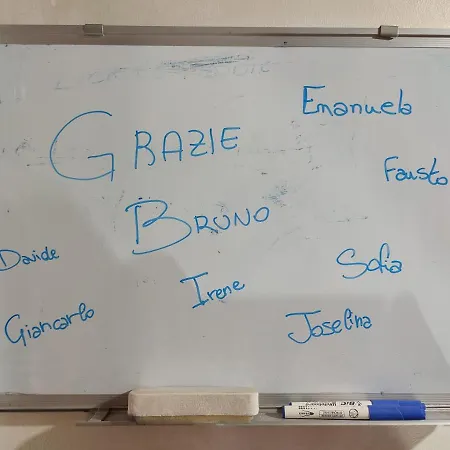 Emanuela
GRAZIE
Fausto
BRUNO
Davide
Sofia
Irene
Giancarlo
Joselina